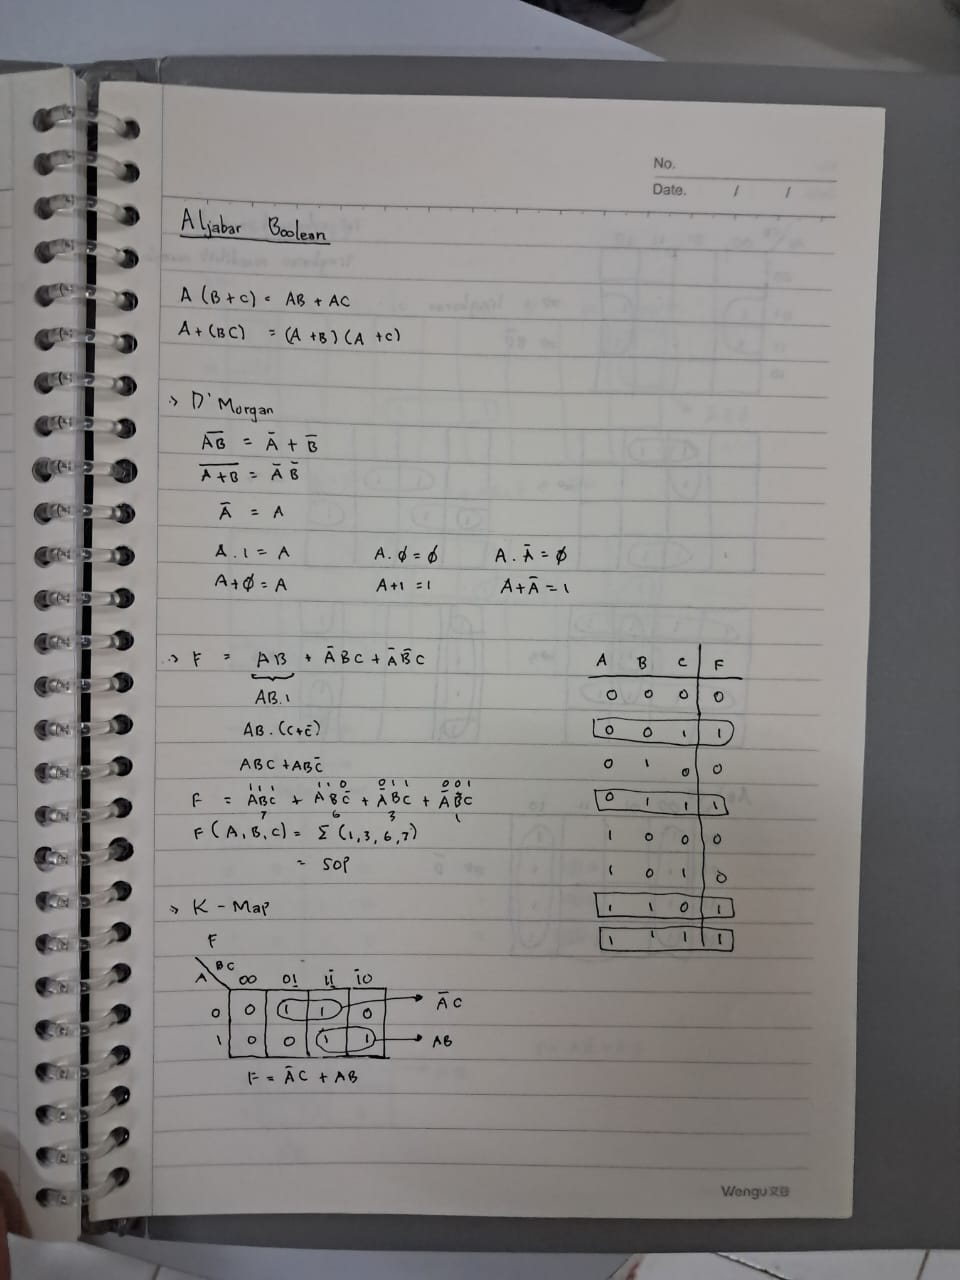 No.
Date. / /
Aljabar Boolean
A (B+C) = AB + AC
A+(BC) = (A+B) (A+C)
-> D'Morgan
A̅B̅ = A̅ + B̅
A̅+̅B̅ = A̅ B̅
A̅ = A
A . 1 = A A . ∅ = ∅ A . A̅ = ∅
A+∅ = A A+1 = 1 A+A̅ = 1
-> F = AB + A̅BC + A̅B̅C
AB.1
AB.(C+C̅)
ABC + ABC̅
111 110 011 001
F = ABC + ABC̅ + A̅BC + A̅B̅C
7 6 3 1
F(A,B,C) = Σ (1,3,6,7)
= SOP
A B C F
0 0 0 0
0 0 1 1
0 1 0 0
0 1 1 1
1 0 0 0
1 0 1 0
1 1 0 1
1 1 1 1
-> K-Map
F
A BC 00 01 11 10
0 0 1 1 0 A̅C
1 0 0 1 1 AB
F = A̅C + AB
Wengu文谷